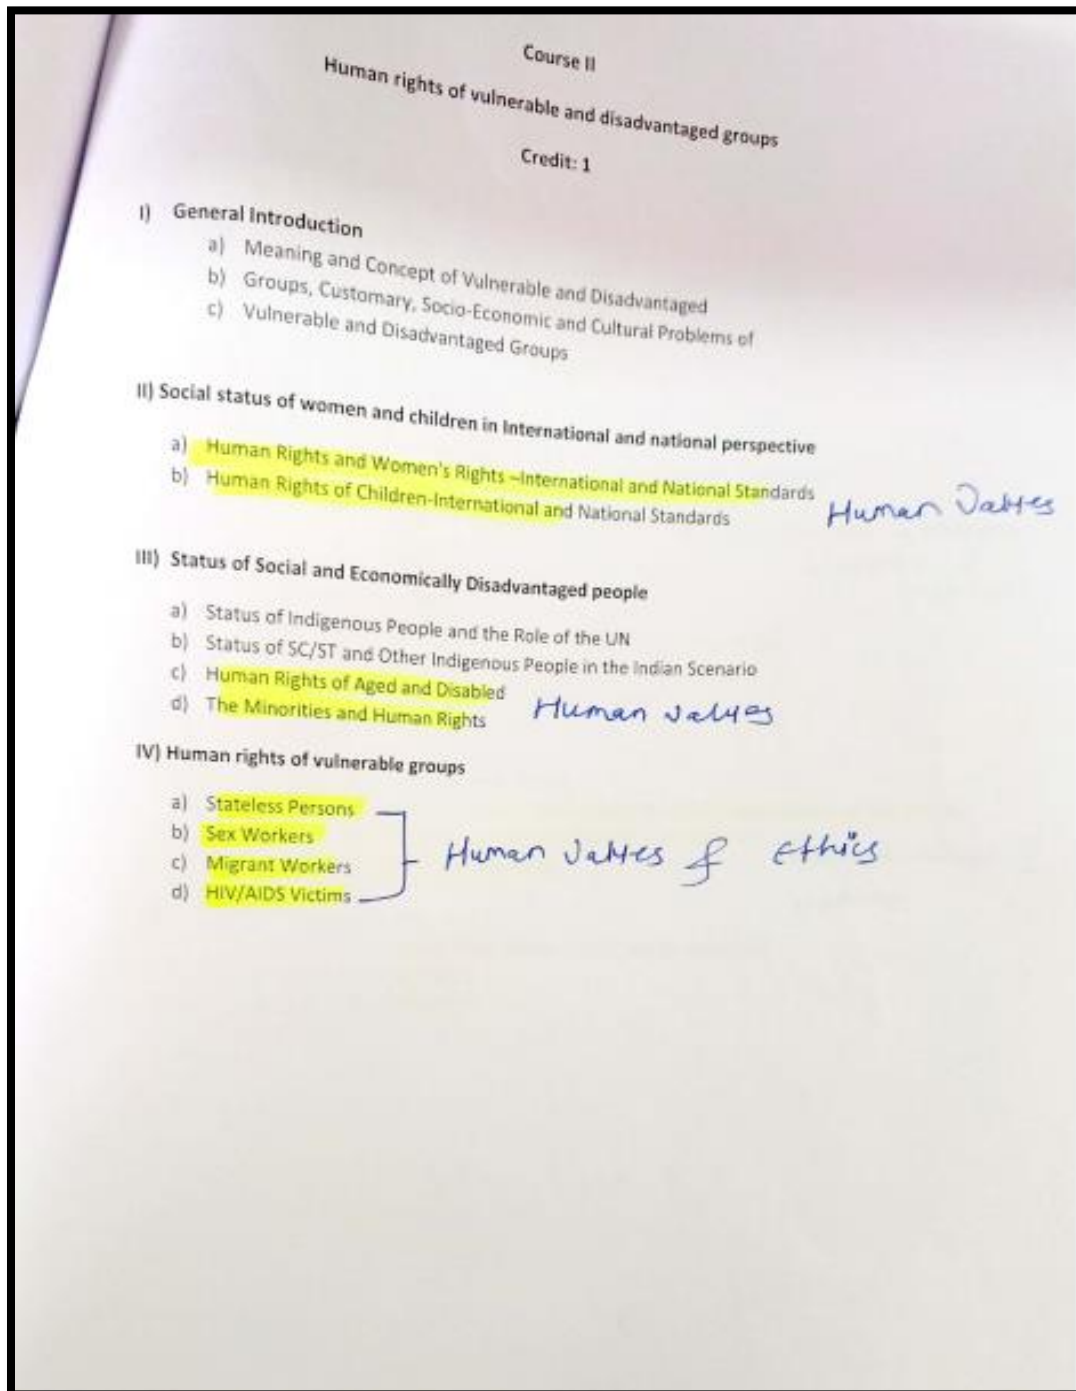 Course II
Human rights of vulnerable and disadvantaged groups
Credit: 1
I) General Introduction
a) Meaning and Concept of Vulnerable and Disadvantaged
b) Groups, Customary, Socio-Economic and Cultural Problems of
c) Vulnerable and Disadvantaged Groups
II) Social status of women and children in International and national perspective
a) Human Rights and Women's Rights –International and National Standards
b) Human Rights of Children-International and National Standards
Human Values
III) Status of Social and Economically Disadvantaged people
a) Status of Indigenous People and the Role of the UN
b) Status of SC/ST and Other Indigenous People in the Indian Scenario
c) Human Rights of Aged and Disabled
d) The Minorities and Human Rights
Human values
IV) Human rights of vulnerable groups
a) Stateless Persons
b) Sex Workers
c) Migrant Workers
d) HIV/AIDS Victims
Human Values & Ethics